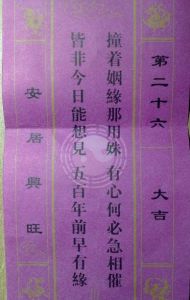 第二十六　大吉
撞着姻緣那用媒　有心何必急相催
皆非今日能想見　五百年前早有緣
安居興旺